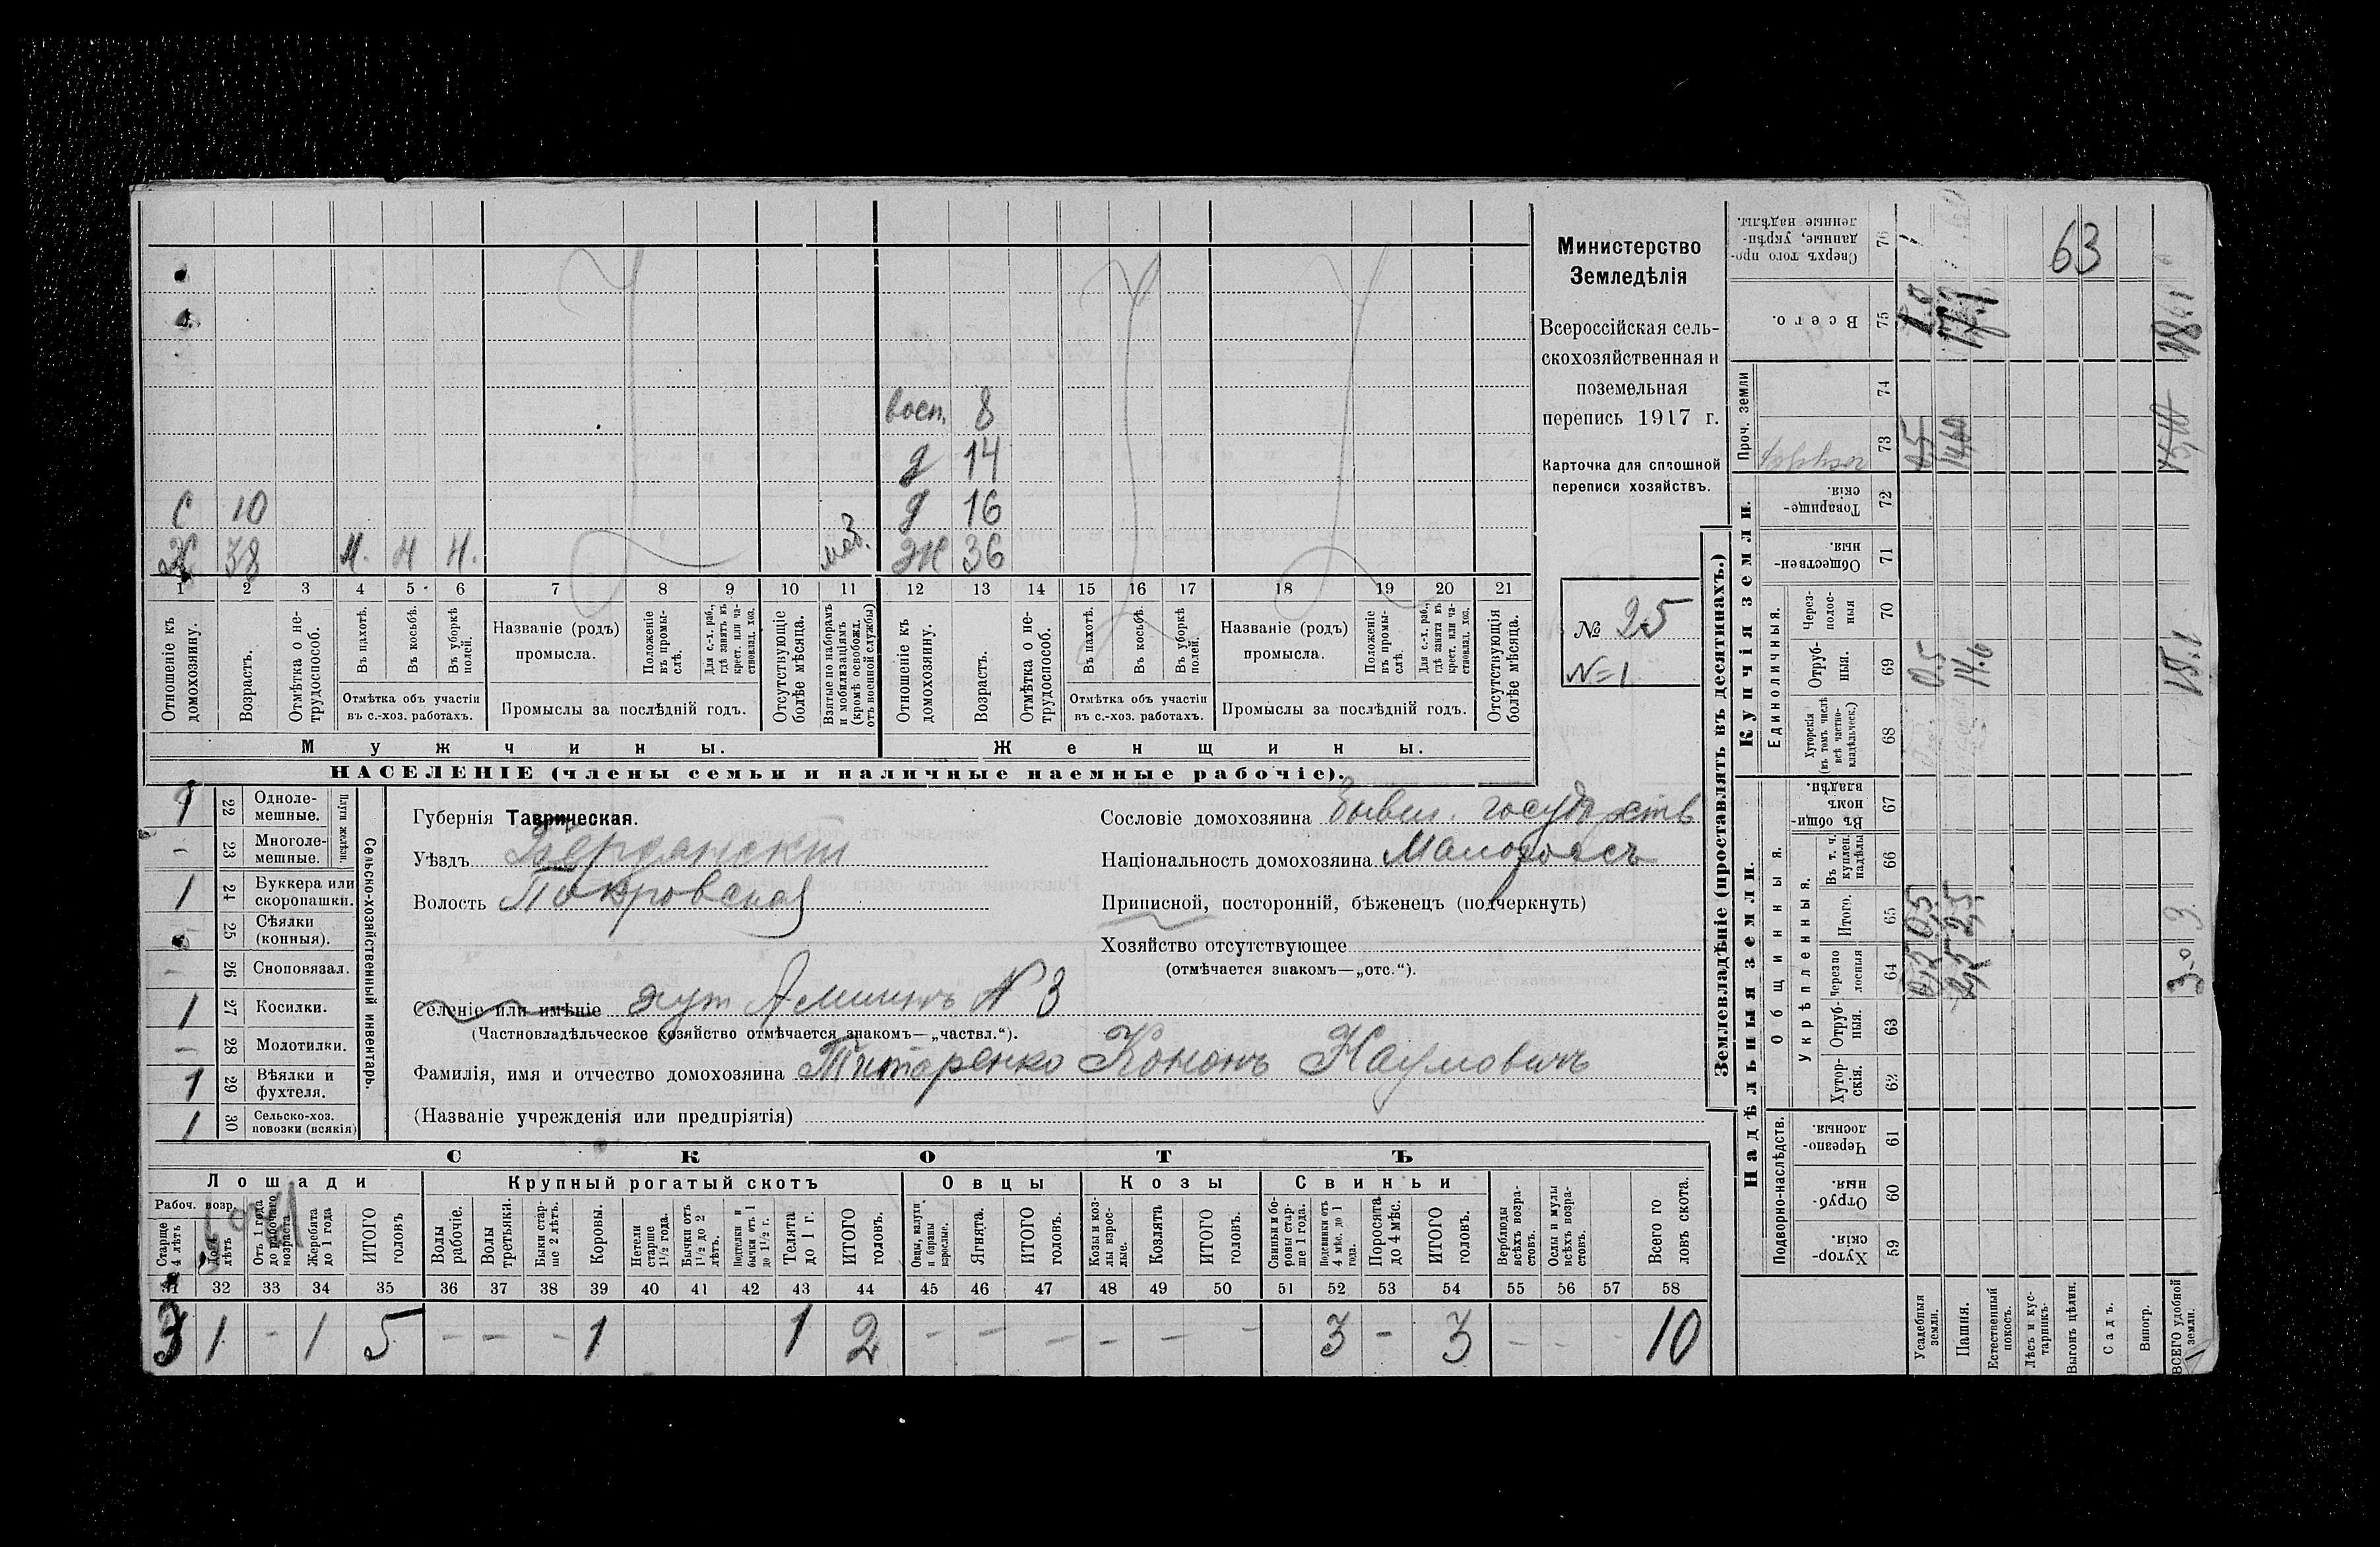 восп. 8
д 14
С 10 д 16
Х 38 н. н н. моб. Ж 36
1 2 3 4 5 6 7 8 9 10 11 12 13 14 15 16 17 18 19 20 21
Отношеніе къ домохозяину.
Возрастъ.
Отмѣтка о не-
трудоспособ.
Въ пахотѣ.
Въ косьбѣ.
Въ уборкѣ полей.
Отмѣтка объ участіи
въ с.-хоз. работахъ.
Названіе (родъ)
промысла.
Положеніе въ промы-
слѣ.
Для с.-х. раб.,
гдѣ занятъ въ
крест. или ча-
стновлад. хоз.
Промыслы за послѣдній годъ.
Отсутствующіе
болѣе мѣсяца.
Взятые по наборамъ
и мобилизаціямъ
(кромѣ освобожд.
отъ военной службы)
Отношеніе къ
домохозяину.
Возрастъ.
Отмѣтка о не-
трудоспособ.
Въ пахотѣ.
Въ косьбѣ.
Въ уборкѣ
полей.
Отмѣтка объ участіи
въ с.-хоз. работахъ.
Названіе (родъ)
промысла.
Положеніе
въ промы-
слѣ.
Для с.-х. раб.,
гдѣ занята въ
крест. или ча-
стновлад. хоз.
Промыслы за послѣдній годъ.
Отсутствующія
болѣе мѣсяца.
Мужчины. Женщины.
НАСЕЛЕНІЕ (члены семьи и наличные наемные рабочіе).
Министерство
Земледѣлія
Всероссійская сель-
скохозяйственная и
поземельная
перепись 1917 г.
Карточка для сплошной
переписи хозяйствъ.
№ 25
N=1
Сельско-хозяйственный инвентарь.
Плуги желѣзн.
1 22 Одноле-
мешные.
- 23 Многоле-
мешные.
1 24 Буккера или
скоропашки.
25 Сѣялки
(конныя).
- 26 Сноповязал.
1 27 Косилки.
- 28 Молотилки.
1 29 Вѣялки и
фухтеля.
1 30 Сельско-хоз.
повозки (всякія)
Губернія Таврическая.
Уѣздъ Бердянскій
Волость Покровская
Селеніе или имѣніе хут. №3
(Частновладѣльческое хозяйство отмѣчается знакомъ—„частвл.“).
Фамилія, имя и отчество домохозяина Титаренко Кононъ Наумовичъ
(Названіе учрежденія или предпріятія)
Сословіе домохозяина бывш. государств
Національность домохозяина Малороссъ
Приписной, посторонній, бѣженецъ (подчеркнуть)
Хозяйство отсутствующее
(отмѣчается знакомъ—„отс.“).
СКОТЪ
Лошади Крупный рогатый скотъ Овцы Козы Свиньи
Рабоч. возр.
Старше
4 лѣтъ
До 4
лѣтъ
Отъ 1 года
до рабочаго
возраста
Жеребята
до 1 года
ИТОГО
головъ
Волы
рабочіе.
Волы
третьяки.
Быки стар-
ше 2 лѣтъ.
Коровы.
Нетели
старше
1½ года.
Бычки отъ
1½ до 2
лѣтъ.
Подтелки и
бычки отъ 1
до 1½ г.
Телята
до 1 г.
ИТОГО
головъ.
Овцы, валухи
и бараны
взрослые.
Ягнята.
ИТОГО
головъ.
Козы и коз-
лы взрос-
лые.
Козлята
ИТОГО
головъ.
Свиньи и бо-
ровы стар-
ше 1 года.
Подсвинки отъ
4 мѣс. до 1
года.
Поросята
до 4 мѣс.
ИТОГО
головъ.
Верблюды
всѣхъ возра-
стовъ.
Ослы и мулы
всѣхъ возра-
стовъ.
Всего го
ловъ скота.
31 32 33 34 35 36 37 38 39 40 41 42 43 44 45 46 47 48 49 50 51 52 53 54 55 56 57 58
3 1 - 1 5 - - - 1 1 2 - - - - - - 3 - 3 - - - 10
Землевладѣніе (проставлять въ десятинахъ.)
Купчія земли.
Надѣльныя земли.
Сверхъ того про-
данные, укрѣп-
ленные надѣлы.
76
63
Всего.
75
18.1
Проч. земли
74
73
0,5
14,60
Товарище-
скія.
72
Обществен-
ныя.
71
Единоличныя.
Через-
полос-
ныя
70
Отруб-
ныя.
69
0.5
15.1
Хуторскія
(въ томъ числѣ
всѣ частно-
владѣльческ.)
68
Въ общи-
номъ
владѣн.
67
Общинныя.
Укрѣпленныя.
Въ т. ч.
куплен.
надѣлы
66
Итого.
65
0,5
2,5
3.
Черезпо
лосныя
64
0,5
2,5
3.0
Отруб-
ныя.
63
Хутор-
скія.
62
Подворно-наслѣдств.
Черезпо-
лосныя.
61
Отруб-
ныя.
60
Хутор-
скія.
59
Усадебныя
земли.
Пашня.
Естественный
покосъ.
Лѣсъ и кус-
тарникъ.
Выгонъ цѣлин.
Садъ.
Виногр.
ВСЕГО удобной
земли.